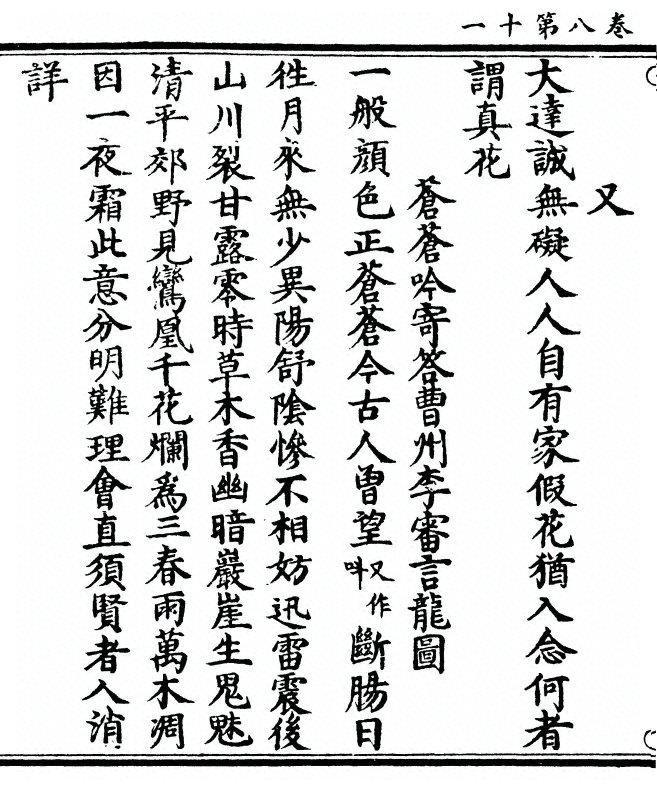 一十第八卷
又
大達誠無礙人人自有家假花猶入念何者
謂真花
蒼蒼吟寄答曹州李審言龍圖
一般顔色正蒼蒼今古人曾望又作叫斷腸日
徃月來無少異陽舒陰慘不相妨迅雷震後
山川裂甘露零時草木香幽暗巖崖生鬼魅
清平郊野見鸞凰千花爛爲三春雨萬木凋
因一夜霜此意分明難理會直須賢者入消
詳